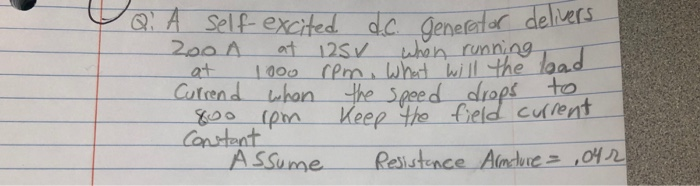 Q: A self-excited d.c. generator delivers
200 A at 125V when running
at 1000 rpm. What will the load
Currend when the speed drops to
800 rpm Keep the field current
Constant
ASSume Resistence Armeture = .04Ω